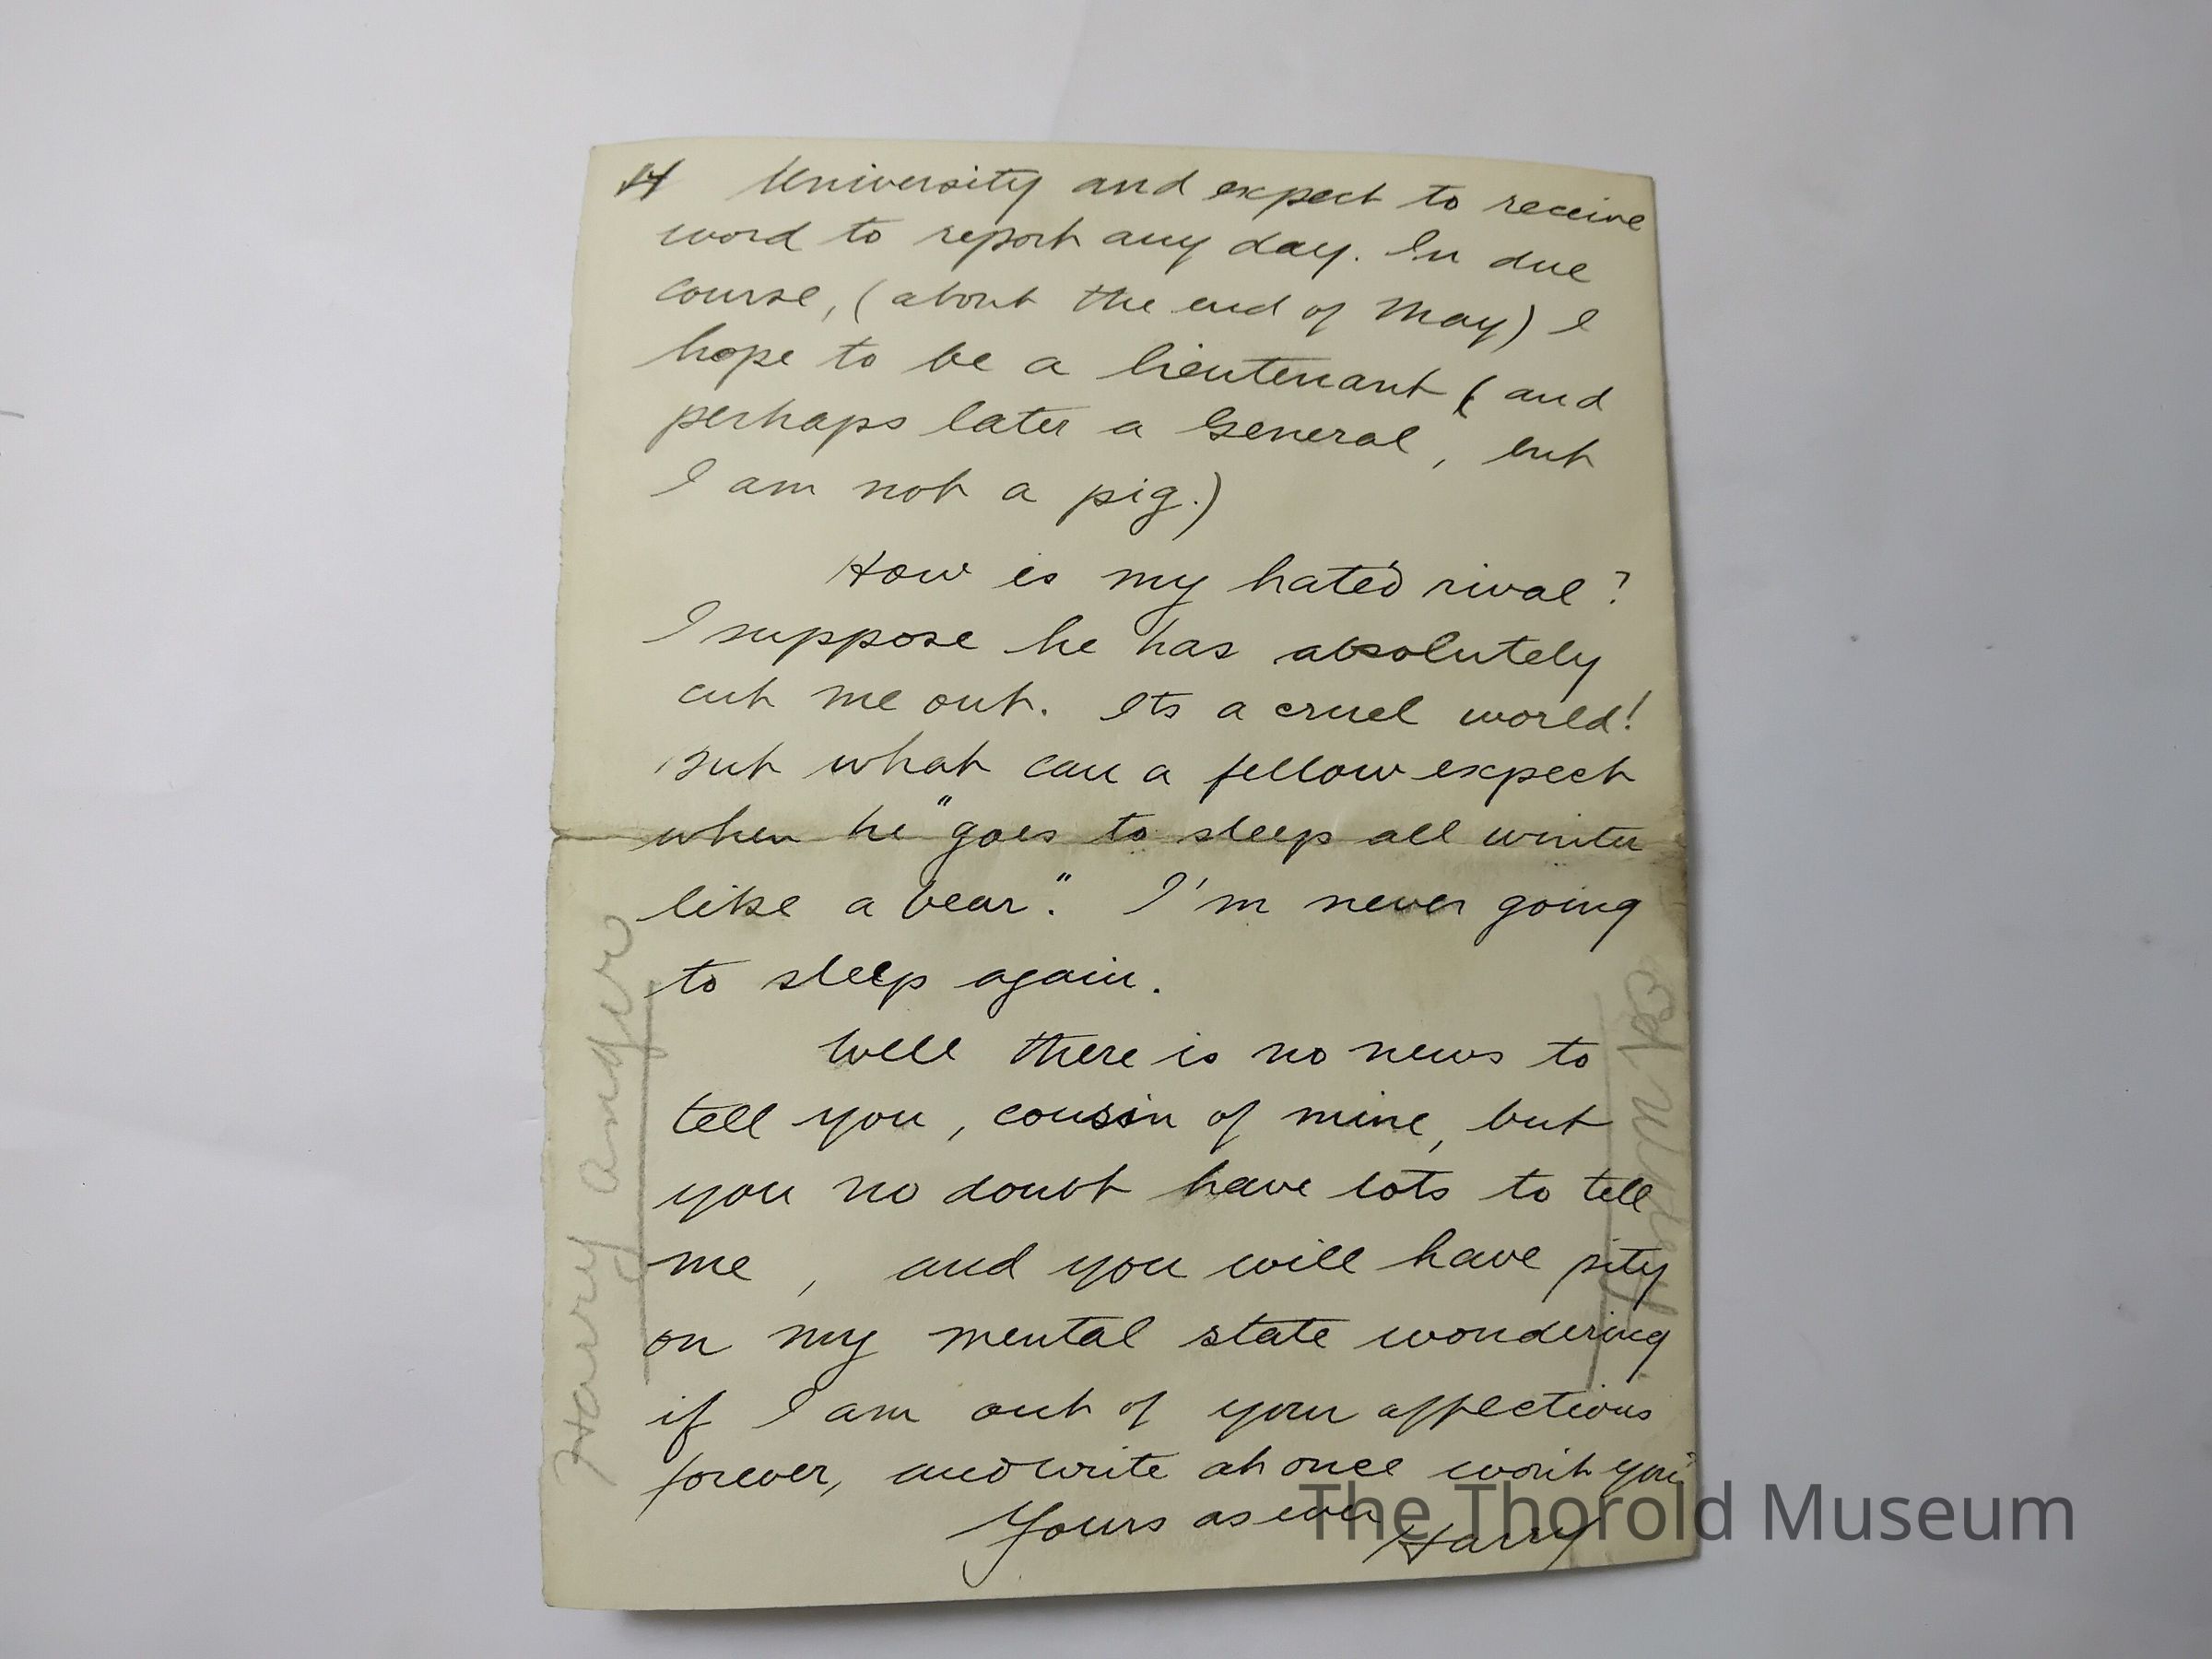 14 University and expect to receive
word to report any day. In due
course, (about the end of May) I
hope to be a lieutenant (and
perhaps later a General, but
I am not a pig.)
How is my hated rival?
I suppose he has absolutely
cut me out. Its a cruel world!
But what can a fellow expect
when he "goes to sleep all winter
like a bear". I'm never going
to sleep again.
Well there is no news to
tell you, cousin of mine, but
you no doubt have lots to tell
me, and you will have pity
on my mental state wondering
if I am out of your affections
forever, and write at once won't you?
Yours as ever
Harry
Harry
The Thorold Museum